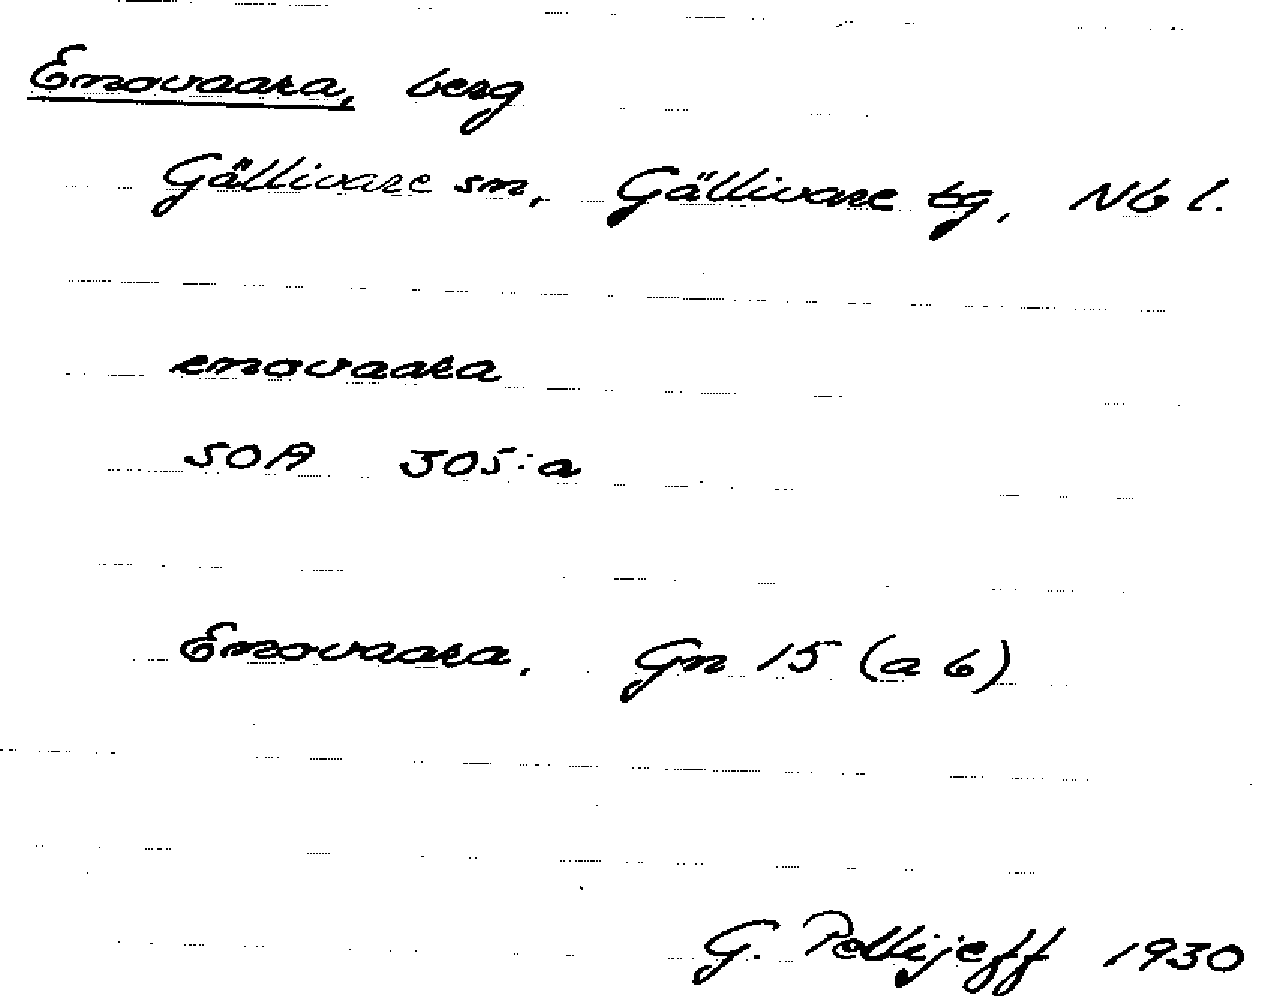 Enovaara, berg
Gällivare sn, Gällivare tg, Nb l.
enovaara
SOA 305:a
Enovaara, Gn 15 (a 6)
G. Pellijeff 1930